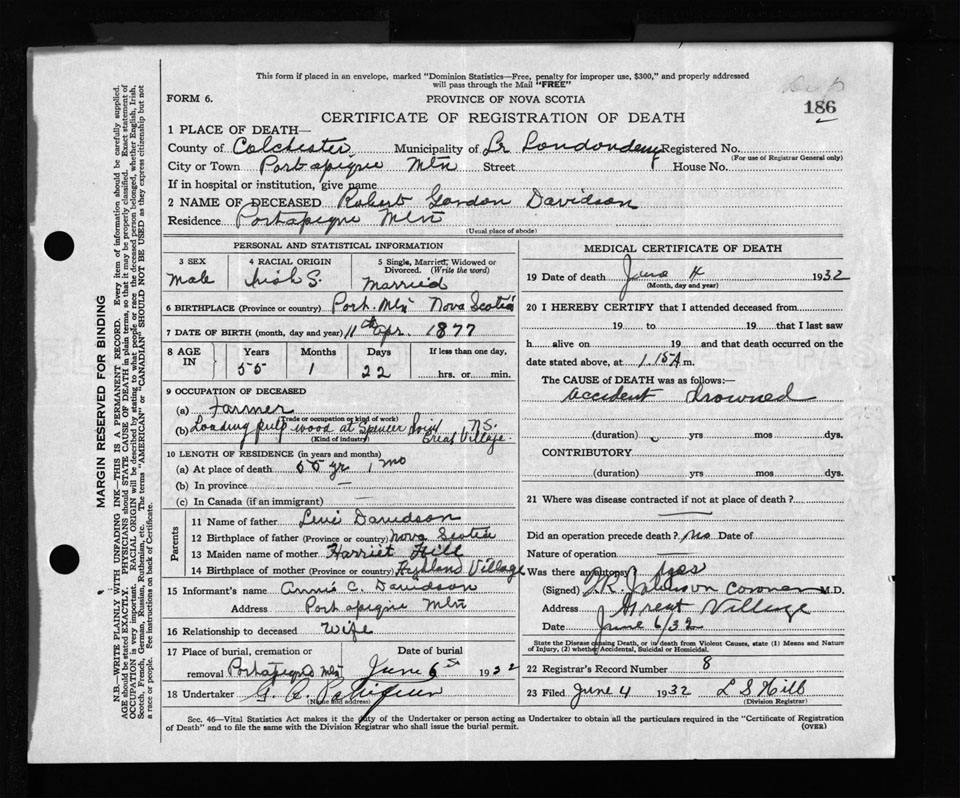 This form if placed in an envelope, marked "Dominion Statistics—Free, penalty for improper use, $300," and properly addressed
will pass through the Mail "FREE"
FORM 6.
PROVINCE OF NOVA SCOTIA
186
CERTIFICATE OF REGISTRATION OF DEATH
1 PLACE OF DEATH—
County of Colchester Municipality of Lr Londonderry Registered No.
(For use of Registrar General only)
City or Town Portapique Mtn Street House No.
If in hospital or institution, give name
2 NAME OF DECEASED Robert Gordon Davidson
Residence Portapique Mtn
(Usual place of abode)
PERSONAL AND STATISTICAL INFORMATION
3 SEX 4 RACIAL ORIGIN 5 Single, Married, Widowed or Divorced. (Write the word)
Male Irish S. Married
6 BIRTHPLACE (Province or country) Port. Mtn Nova Scotia
7 DATE OF BIRTH (month, day and year) 11th Apr. 1877
8 AGE IN Years Months Days If less than one day,
55 1 22 hrs. or min.
9 OCCUPATION OF DECEASED
(a) Farmer
(Trade or occupation or kind of work)
(b) Loading pulp wood at Spencer Point N.S.
(Kind of industry) Great Village.
10 LENGTH OF RESIDENCE (in years and months)
(a) At place of death 55 yr 1 mo
(b) In province —
(c) In Canada (if an immigrant) —
Parents
11 Name of father Levi Davidson
12 Birthplace of father (Province or country) Nova Scotia
13 Maiden name of mother Harriet Hill
14 Birthplace of mother (Province or country) Highland Village
15 Informant's name Annie C. Davidson
Address Portapique Mtn
16 Relationship to deceased Wife
17 Place of burial, cremation or removal Portapique Mtn Date of burial June 6 1932
18 Undertaker G.
(Name and address)
MEDICAL CERTIFICATE OF DEATH
19 Date of death June 4 1932
(Month, day and year)
20 I HEREBY CERTIFY that I attended deceased from
19 to 19 that I last saw
h alive on 19 and that death occurred on the
date stated above, at 1.15 A m.
The CAUSE OF DEATH was as follows:—
accident drowned
(duration) yrs mos dys.
CONTRIBUTORY
(duration) yrs mos dys.
21 Where was disease contracted if not at place of death?
Did an operation precede death? No Date of
Nature of operation
Was there an autopsy? yes
(Signed) T.R. Johnson Coroner M.D.
Address Great Village
Date June 6/32
State the Disease causing Death, or in death from Violent Causes, state (1) Means and Nature
of Injury, (2) whether Accidental, Suicidal or Homicidal.
22 Registrar's Record Number 8
23 Filed June 4 1932 L S Hill
(Division Registrar)
Sec. 46—Vital Statistics Act makes it the duty of the Undertaker or person acting as Undertaker to obtain all the particulars required in the "Certificate of Registration
of Death" and to file the same with the Division Registrar who shall issue the burial permit.
(OVER)
MARGIN RESERVED FOR BINDING
N.B.—WRITE PLAINLY WITH UNFADING INK—THIS IS A PERMANENT RECORD. Every item of information should be carefully supplied.
AGE should be stated EXACTLY. PHYSICIANS should STATE CAUSE OF DEATH in plain terms, so that it may be properly classified. Exact statement of
OCCUPATION is very important. RACIAL ORIGIN will be described by stating to what people or race the deceased person belonged, whether English, Irish,
Scotch, French, German, Russian, Ruthenian, etc. The terms "AMERICAN" or "CANADIAN" SHOULD NOT BE USED as they express citizenship but not
a race or people. See instructions on back of Certificate.